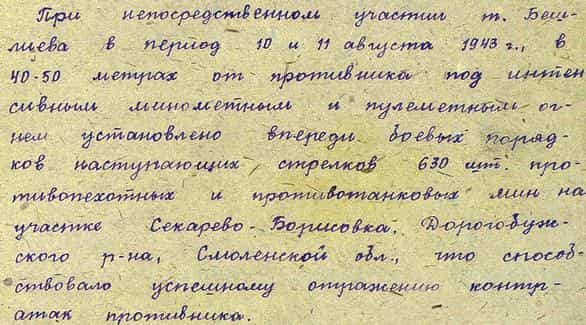 При непосредственном участии т. Беш-
лиева в период 10 и 11 августа 1943 г., в
40-50 метрах от противника под интен
сивным минометным и пулеметным ог-
нем установлено впереди боевых поряд-
ков наступающих стрелков 630 шт. про-
тивопехотных и противотанковых мин на
участке Секарево-Борисовка, Дорогобуж-
ского р-на, Смоленской обл., что способ-
ствовало успешному отражению контр-
атак противника.